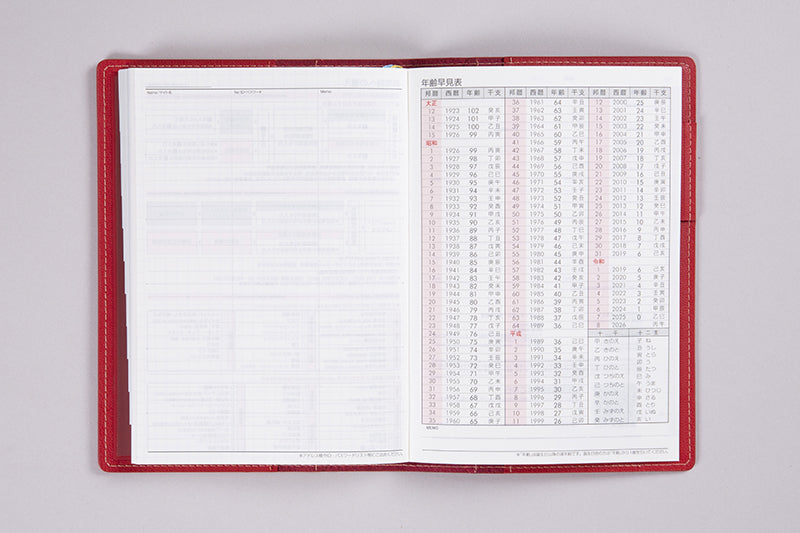 Name/サイト名 Tel・ID・パスワード Memo
年齢早見表
邦暦 西暦 年齢 干支
大正
12 1923 102 癸亥
13 1924 101 甲子
14 1925 100 乙丑
15 1926 99 丙寅
昭和
1 1926 99 丙寅
2 1927 98 丁卯
3 1928 97 戊辰
4 1929 96 己巳
5 1930 95 庚午
6 1931 94 辛未
7 1932 93 壬申
8 1933 92 癸酉
9 1934 91 甲戌
10 1935 90 乙亥
11 1936 89 丙子
12 1937 88 丁丑
13 1938 87 戊寅
14 1939 86 己卯
15 1940 85 庚辰
16 1941 84 辛巳
17 1942 83 壬午
18 1943 82 癸未
19 1944 81 甲申
20 1945 80 乙酉
21 1946 79 丙戌
22 1947 78 丁亥
23 1948 77 戊子
24 1949 76 己丑
25 1950 75 庚寅
26 1951 74 辛卯
27 1952 73 壬辰
28 1953 72 癸巳
29 1954 71 甲午
30 1955 70 乙未
31 1956 69 丙申
32 1957 68 丁酉
33 1958 67 戊戌
34 1959 66 己亥
35 1960 65 庚子
邦暦 西暦 年齢 干支
36 1961 64 辛丑
37 1962 63 壬寅
38 1963 62 癸卯
39 1964 61 甲辰
40 1965 60 乙巳
41 1966 59 丙午
42 1967 58 丁未
43 1968 57 戊申
44 1969 56 己酉
45 1970 55 庚戌
46 1971 54 辛亥
47 1972 53 壬子
48 1973 52 癸丑
49 1974 51 甲寅
50 1975 50 乙卯
51 1976 49 丙辰
52 1977 48 丁巳
53 1978 47 戊午
54 1979 46 己未
55 1980 45 庚申
56 1981 44 辛酉
57 1982 43 壬戌
58 1983 42 癸亥
59 1984 41 甲子
60 1985 40 乙丑
61 1986 39 丙寅
62 1987 38 丁卯
63 1988 37 戊辰
64 1989 36 己巳
平成
1 1989 36 己巳
2 1990 35 庚午
3 1991 34 辛未
4 1992 33 壬申
5 1993 32 癸酉
6 1994 31 甲戌
7 1995 30 乙亥
8 1996 29 丙子
9 1997 28 丁丑
10 1998 27 戊寅
11 1999 26 己卯
邦暦 西暦 年齢 干支
12 2000 25 庚辰
13 2001 24 辛巳
14 2002 23 壬午
15 2003 22 癸未
16 2004 21 甲申
17 2005 20 乙酉
18 2006 19 丙戌
19 2007 18 丁亥
20 2008 17 戊子
21 2009 16 己丑
22 2010 15 庚寅
23 2011 14 辛卯
24 2012 13 壬辰
25 2013 12 癸巳
26 2014 11 甲午
27 2015 10 乙未
28 2016 9 丙申
29 2017 8 丁酉
30 2018 7 戊戌
31 2019 6 己亥
令和
1 2019 6 己亥
2 2020 5 庚子
3 2021 4 辛丑
4 2022 3 壬寅
5 2023 2 癸卯
6 2024 1 甲辰
7 2025 0 乙巳
8 2026 丙午
十干
甲 きのえ
乙 きのと
丙 ひのえ
丁 ひのと
戊 つちのえ
己 つちのと
庚 かのえ
辛 かのと
壬 みずのえ
癸 みずのと
十二支
子 ね
丑 うし
寅 とら
卯 う
辰 たつ
巳 み
午 うま
未 ひつじ
申 さる
酉 とり
戌 いぬ
亥 い
MEMO
※アドレス帳やID・パスワードリスト等にご活用ください